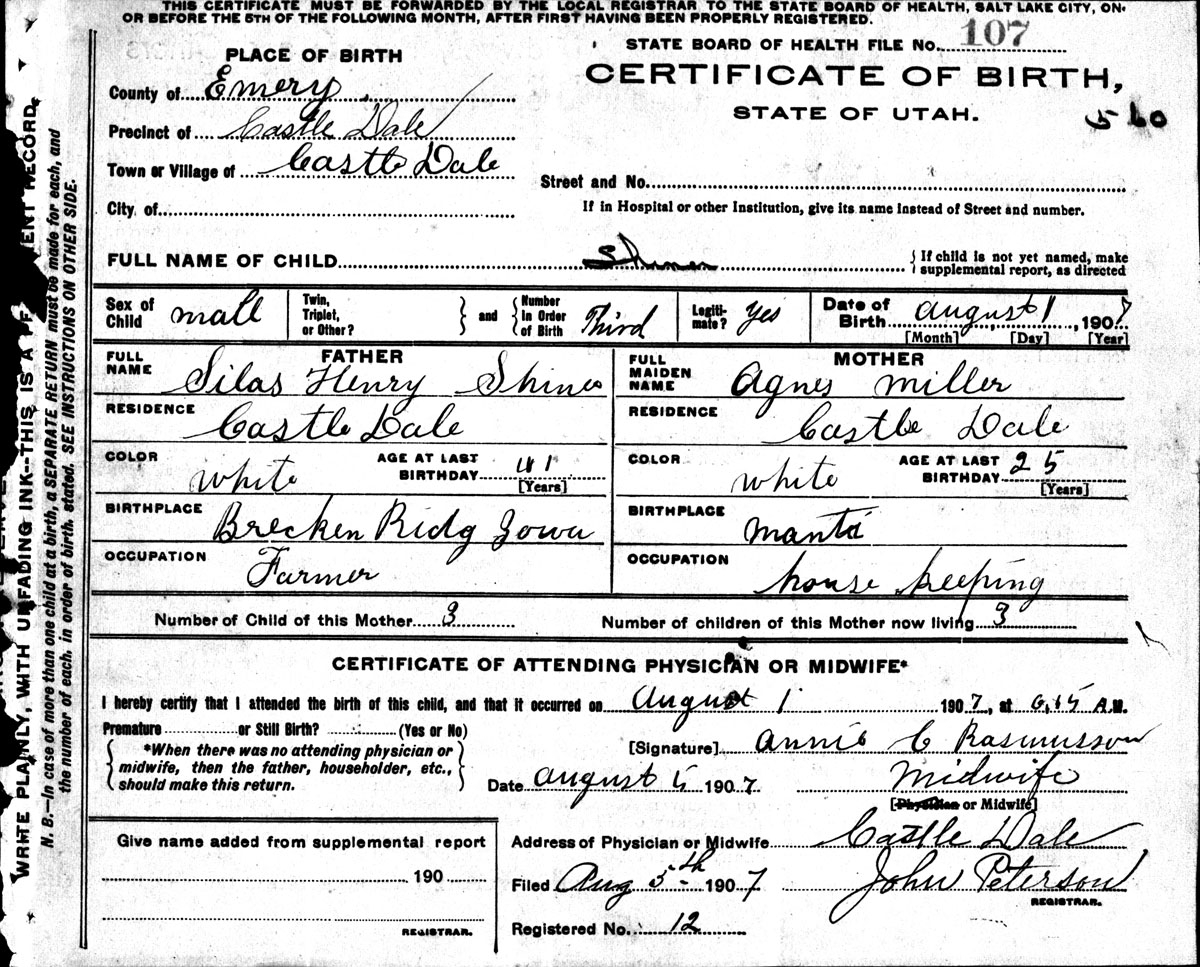 THIS CERTIFICATE MUST BE FORWARDED BY THE LOCAL REGISTRAR TO THE STATE BOARD OF HEALTH, SALT LAKE CITY, ON
OR BEFORE THE 5TH OF THE FOLLOWING MONTH, AFTER FIRST HAVING BEEN PROPERLY REGISTERED.
STATE BOARD OF HEALTH FILE No. 107
PLACE OF BIRTH
CERTIFICATE OF BIRTH,
STATE OF UTAH.
560
County of Emery
Precinct of Castle Dale
Town or Village of Castle Dale
Street and No.
City of
If in Hospital or other Institution, give its name instead of Street and number.
FULL NAME OF CHILD Shiner { If child is not yet named, make
supplemental report, as directed
Sex of Child mall Twin, Triplet, or Other? } and { Number in Order of Birth Third Legiti-mate? Yes Date of Birth august 1, 1907
[Month] [Day] [Year]
FATHER
FULL NAME Silas Henry Shiner
RESIDENCE Castle Dale
COLOR white AGE AT LAST BIRTHDAY 41
[Years]
BIRTHPLACE Brecken Ridg Iowa
OCCUPATION Farmer
MOTHER
FULL MAIDEN NAME Agnes miller
RESIDENCE Castle Dale
COLOR white AGE AT LAST BIRTHDAY 25
[Years]
BIRTHPLACE manti
OCCUPATION house keeping
Number of Child of this Mother 3 Number of children of this Mother now living 3
CERTIFICATE OF ATTENDING PHYSICIAN OR MIDWIFE*
I hereby certify that I attended the birth of this child, and that it occurred on August 1 1907, at 6,15 A.M.
Premature or Still Birth? (Yes or No)
{ *When there was no attending physician or
midwife, then the father, householder, etc.,
should make this return. }
[Signature] annie C Rasmusson
Date august 5 1907 Midwife
[Physician or Midwife]
Give name added from supplemental report
190
REGISTRAR.
Address of Physician or Midwife Castle Dale
Filed Aug 5th 1907 John Peterson
REGISTRAR.
Registered No. 12
WRITE PLAINLY, WITH UNFADING INK--THIS IS A ENT RECORD.
N. B.—In case of more than one child at a birth, a SEPARATE RETURN must be made for each, and
the number of each, in order of birth, stated. SEE INSTRUCTIONS ON OTHER SIDE.